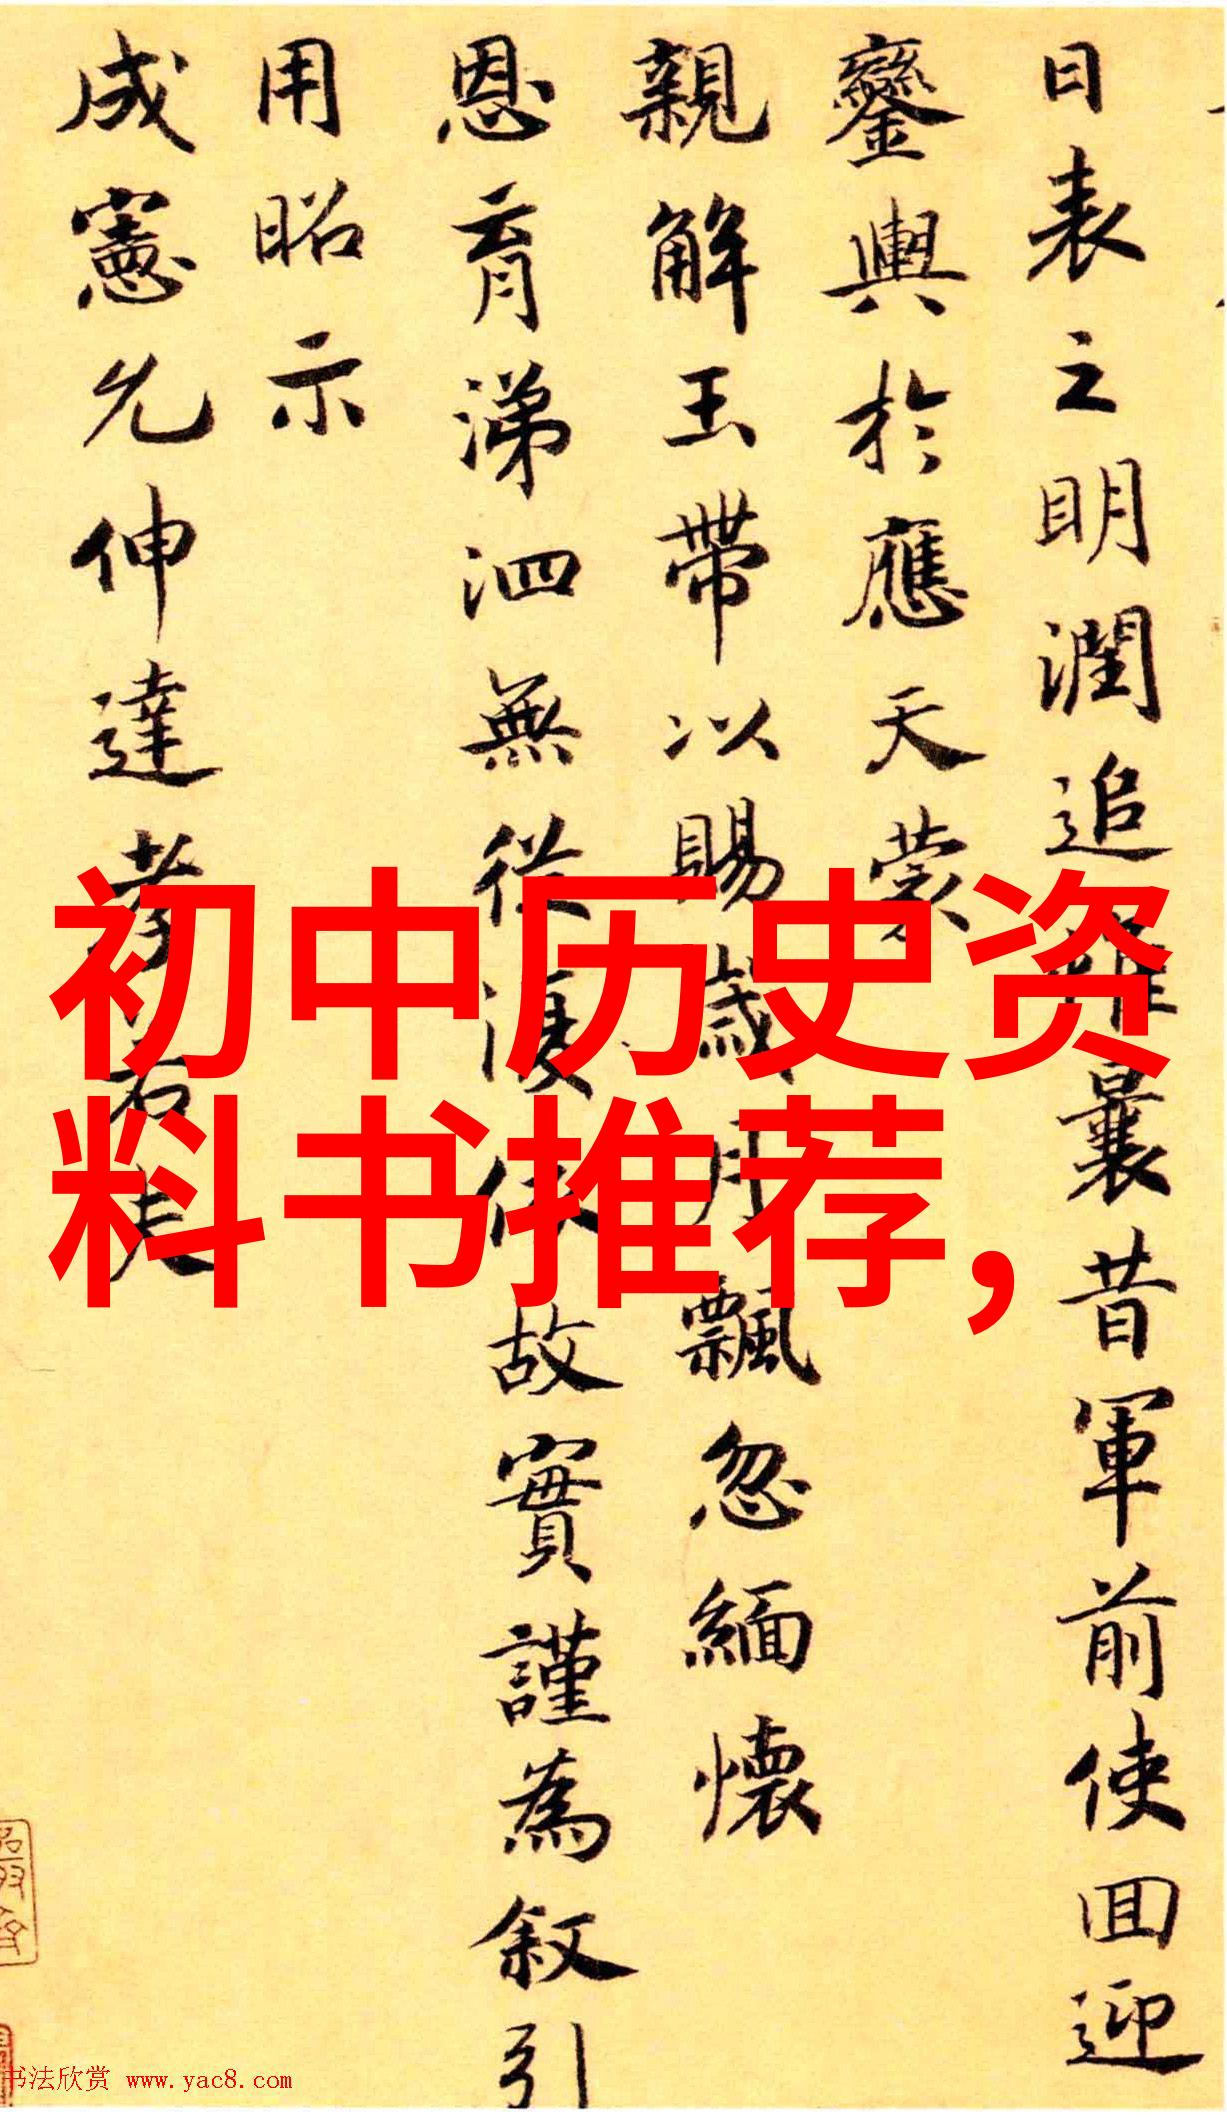 日表之明潤追惟襄昔軍前使囬迎
鑾輿於應天蒙
親解玉帶以賜歲月飄忽緬懷
恩育涕泗無從湲佚故實謹為叙引
用昭示
成憲允伸達孝若夫
初中历史资
料书推荐,
书法欣赏 www.yac8.com